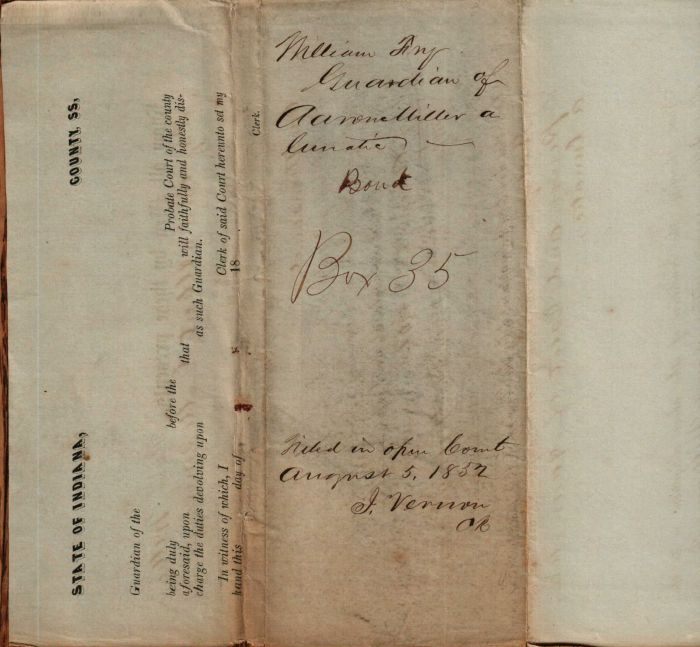 STATE OF INDIANA, COUNTY SS,
Guardian of the
being duly before the Probate Court of the county
aforesaid, upon that will faithfully and honestly dis-
charge the duties devolving upon as such Guardian.
In witness of which, I Clerk of said Court hereunto set my
hand this day of 18
Clerk.
William
Guardian of
Aaron Miller a
lunatic
Bond
Box 35
Filed in open Court
August 5, 1852
J. Vernon
Clk